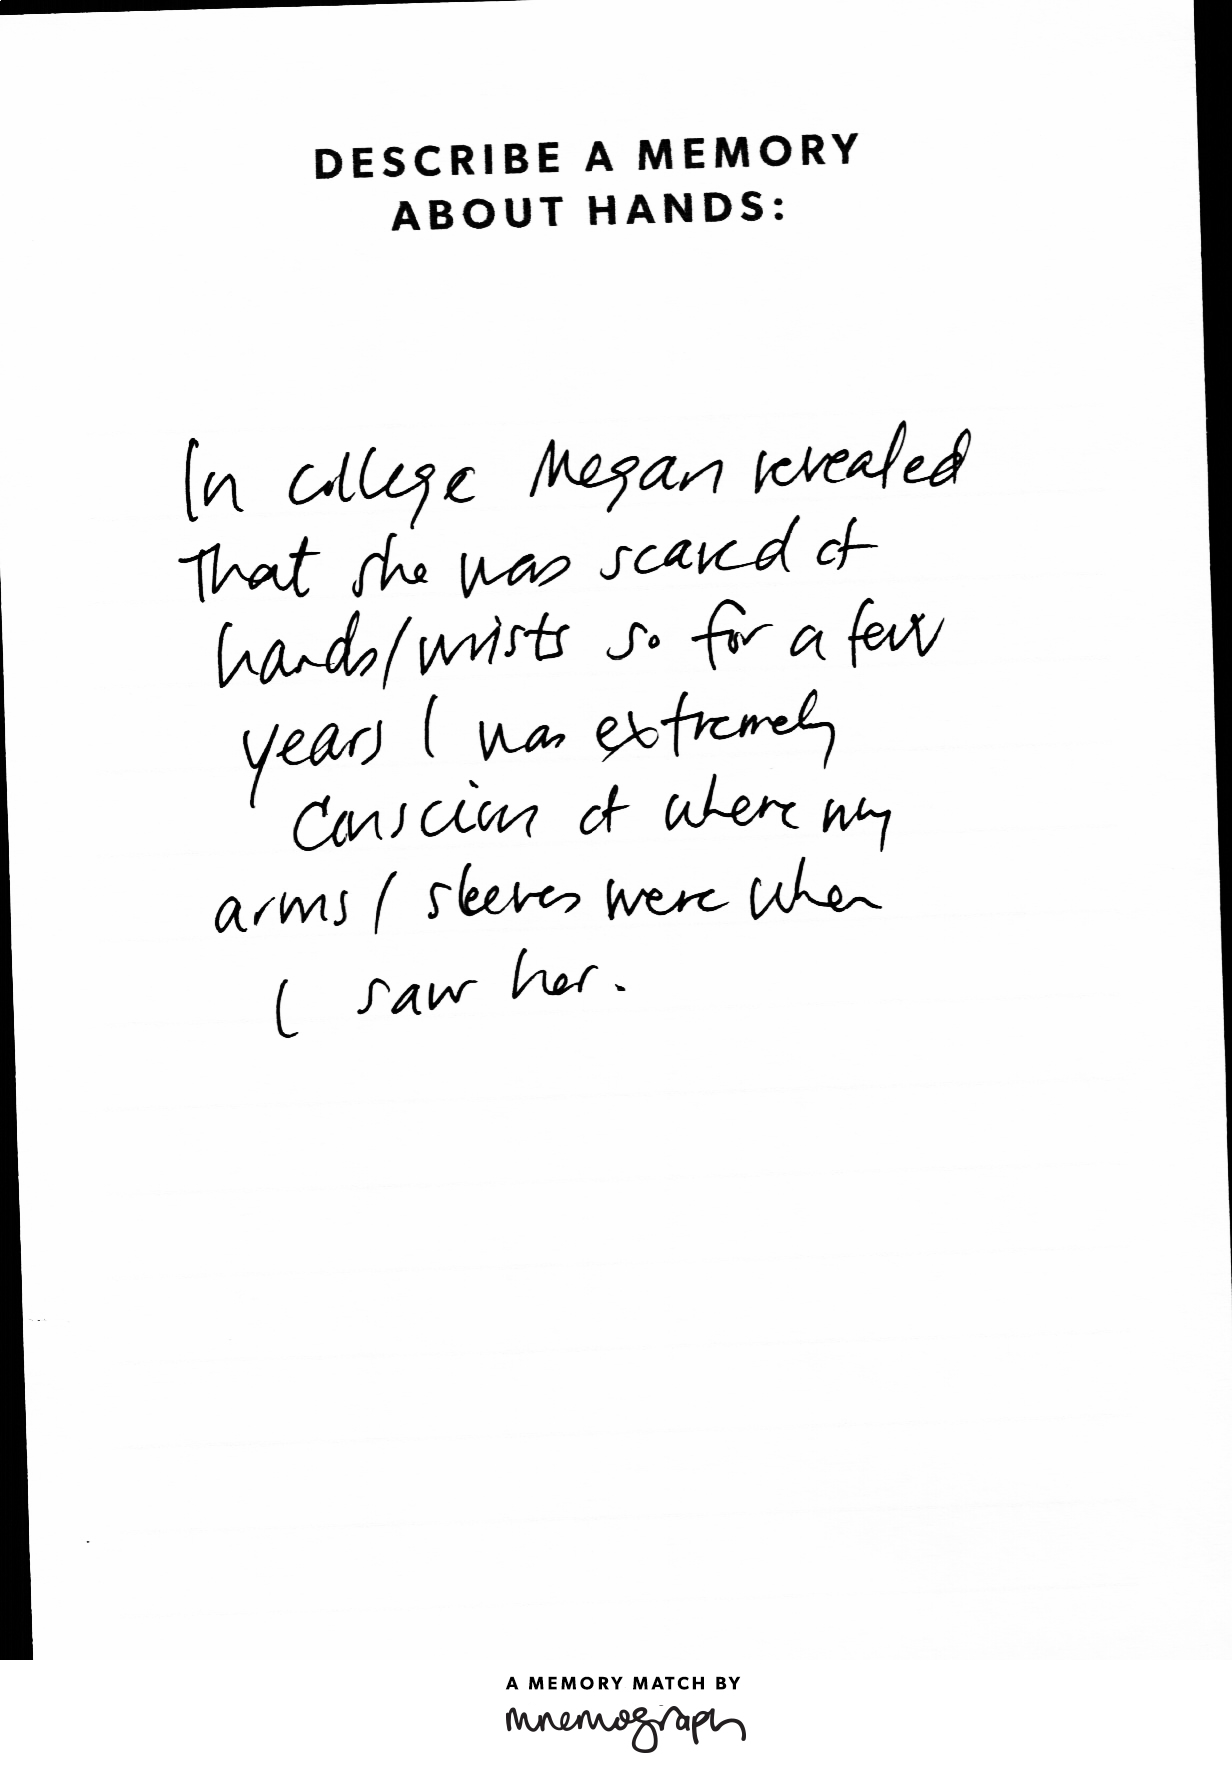 DESCRIBE A MEMORY
ABOUT HANDS:
In college Megan revealed
that she was scared of
hands/wrists so for a few
years I was extremely
conscious of where my
arms/sleeves were when
I saw her.
A MEMORY MATCH BY
mnemograph